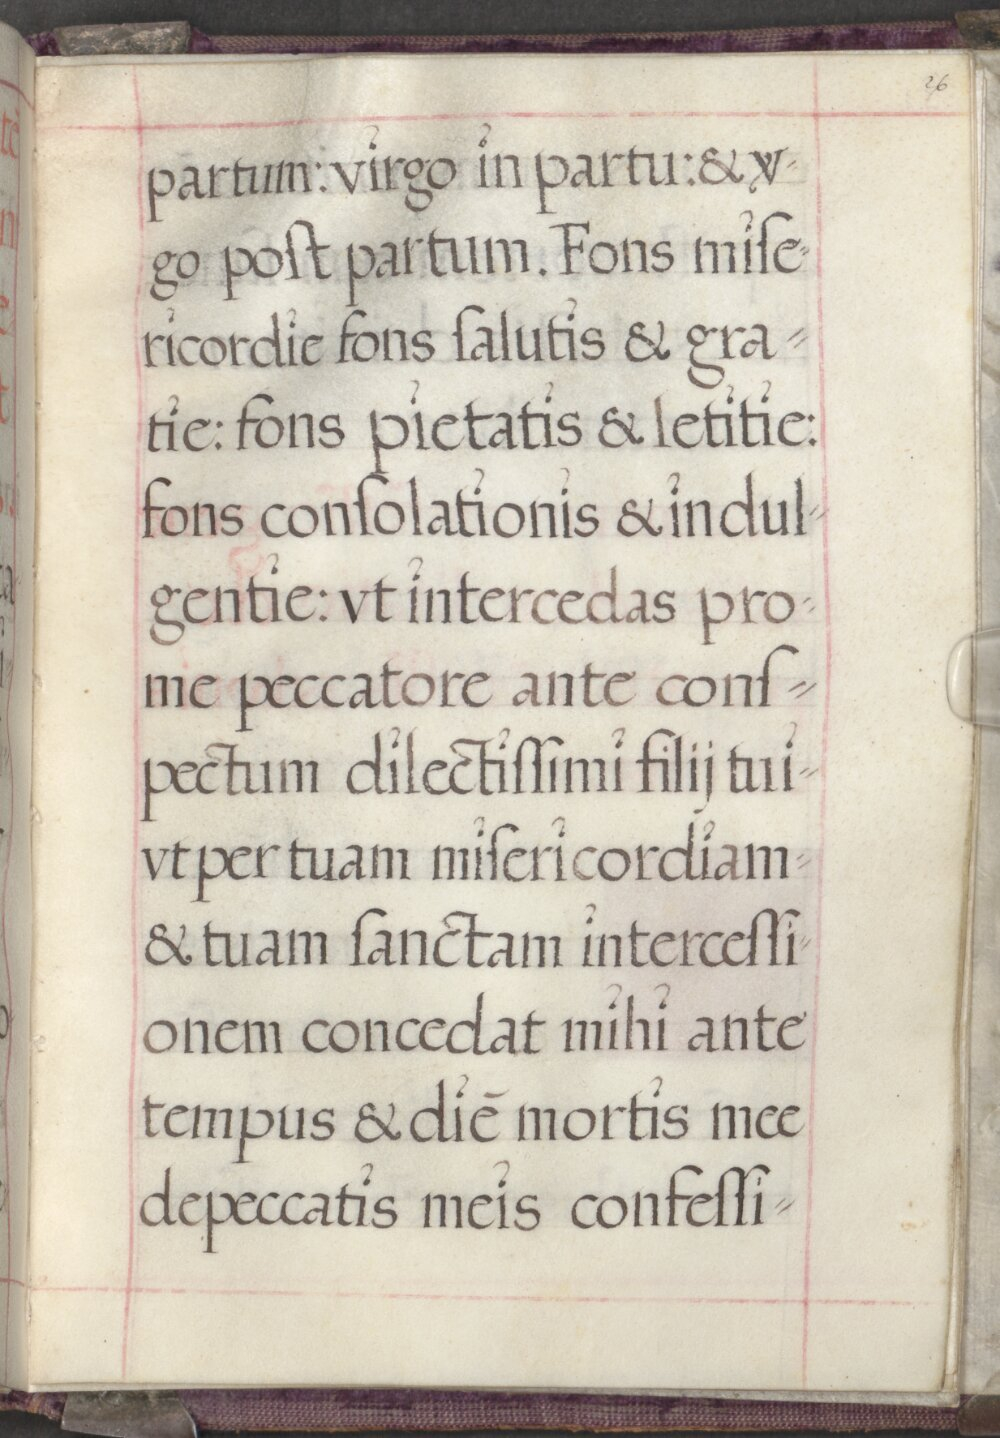 26
partum: virgo in partu: & v-
go poſt partum. Fons miſe-
ricordie fons ſalutis & gra-
tie: fons pietatis & letitie:
fons conſolationis & indul-
gentie: vt intercedas pro-
me peccatore ante conſ-
pectum dilectiſſimi filij tui-
vt per tuam miſericordiam-
& tuam ſanctam interceſſi-
onem concedat mihi ante
tempus & diē mortis mee
de peccatis meis confeſſi-